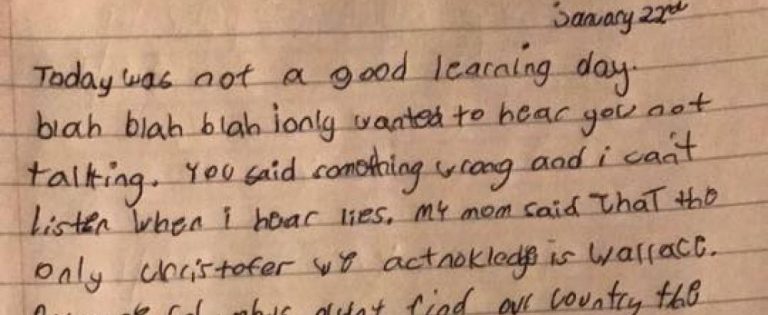 January 22nd
Today was not a good learning day.
blah blah blah i only wanted to hear you not
talking. You said something wrong and i can't
listen when i hear lies. My mom said that the
only christofer we acknokledge is Wallace.
didnt find our country the